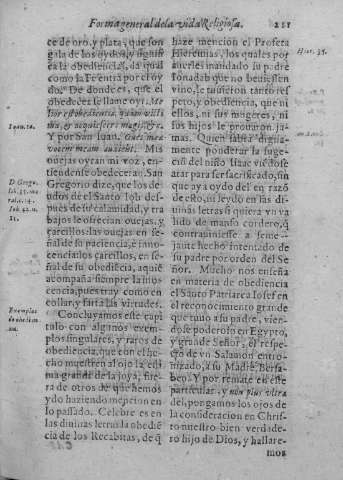 Forma general de la vida Religiosa. 221
ce de oro, y plata, que son
gala de los oydos, y signifi
ca la obediencia, da igual
como la Fè entra por el oy
do. De donde es, que el
obedecer se llame oyr. Me
lior est obedientia, quàm victi
mæ,
Y por san Iuan. Oues meæ
vocem meam audient. Mis
ouejas oyràn mi voz, en-
tiendense obedeceràn. San
Gregorio dize, que los deu
dos del Santo Iob des-
pues de su calamidad, y tra
bajos le ofrecian ouejas, y
çarcillos: las ouejas en se
ñal de su paciencia, è inno-
cencia; los çarcillos, en se
ñal de su obediẽcia, aquiẽ
acompaña siempre la ino
cencia, pues tray como en
collar, y sarta las virtudes.
Concluyamos este capi
tulo con algunos exem-
plos singulares, y raros de
obediencia, que con el he-
cho muestren al ojo la esti
ma grande de la joya, fue
ra de otros de que hemos
ydo haziendo mencion en
lo passado. Celebre es en
las diuinas letras la obediẽ
cia de los Recabitas, de q̃
Ioan. 10.
D. Grego.
lib. 35. mo
ral. c. 14.
Iob. 42. n.
11.
Exemplos
de obediencia.
haze mencion el Profeta
Hieremias, los quales por
auerles mandado su padre
Ionadab que no beuiessen
vino, le tuuieron tanto res
peto, y obediencia, que ni
ellos, ni sus mugeres, ni
sus hijos le prouaron ja-
mas. Quien basta digna-
mente ponderar la suge-
cion del niño Isaac visdose
atar para ser sacrificado, sin
que aya oydo del en razõ
de esto, ni leydo en las di
uinas letras si quiera vn va
lido de manso cordero, q̃
contrauiniesse a seme-
jante hecho intentado de
su padre por orden del Se
ñor. Mucho nos enseña
en materia de obediencia
el Santo Patriarca Iosef en
el reconocimiento grande
que tuuo a su padre, vien-
dose poderoso en Egypto,
y grande Señor, el respe-
cto de vn Salamon entro-
nizado, a su Madre Bersa-
bee. Y por remate en este
particular, y non plus vltra
del, pongamos los ojos de
la consideracion en Chris-
to nuestro bien verdade-
ro hijo de Dios, y hallare-
mos
Hier. 35.